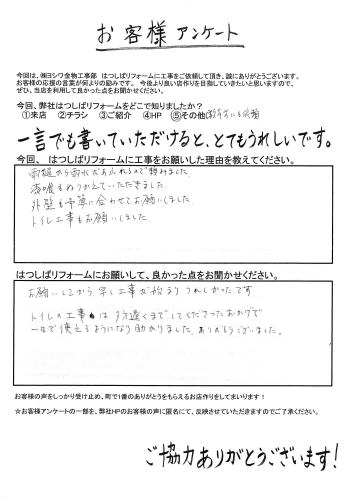 お客様アンケート
今回は、㈱ヨシワ金物工事部　はつしばリフォームに工事をご依頼して頂き、誠にありがとうございます。
お客様の応援の言葉が何よりの励みです。　今後より良い店作りを目指していきたいと思いますので、
ぜひ、当店を利用して良かった点をお聞かせください。
今回、弊社はつしばリフォームをどこで知りましたか？
①来店　②チラシ　③ご紹介　④HP　⑤その他(数年前にも依頼
一言でも書いていただけると、とてもうれしいです。
今回、 はつしばリフォームに工事をお願いした理由を教えてください。
雨樋から雨水があふれるので頼みました
漆喰もぬりかえていただきました
外壁も予算に合わせてお願いしました
トイレ工事もお願いしました
はつしばリフォームにお願いして、良かった点をお聞かせください。
お願いしてから早く工事が始まりうれしかったです
トイレの工事は夕方遅くまでしてくださったおかげで
一日で使えるようになり助かりました。ありがとうございました。
お客様の声をしっかり受け止め、町で1番のありがとうをもらえるお店作りをしてまいります！
☆お客様アンケートの一部を、弊社HPのお客様の声に匿名にて、反映させていただきますのでご了承ください。
ご協力ありがとうございます！